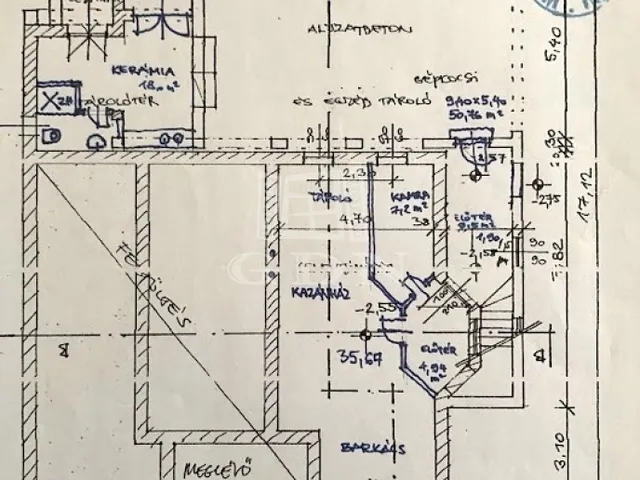 ALJZATBETON
5,40
KERÁMIA
18,- m²
TÁROLÓTÉR
GÉPKOCSI
ÉS EGYÉB TÁROLÓ
9,40×5,40
50,76 m²
30
-2,57
2,30
-2,75
17,12
TÁROLÓ
KAMRA
7,2 m²
4,70
38
ELŐTÉR
1,90
90
90
82
-2,58
FELTÖLTÉS
GDN
KAZÁNHÁZ
100
210
-2,55
35,67
ELŐTÉR
4,94
m²
BARKÁCS
MEGLÉVŐ
3,10